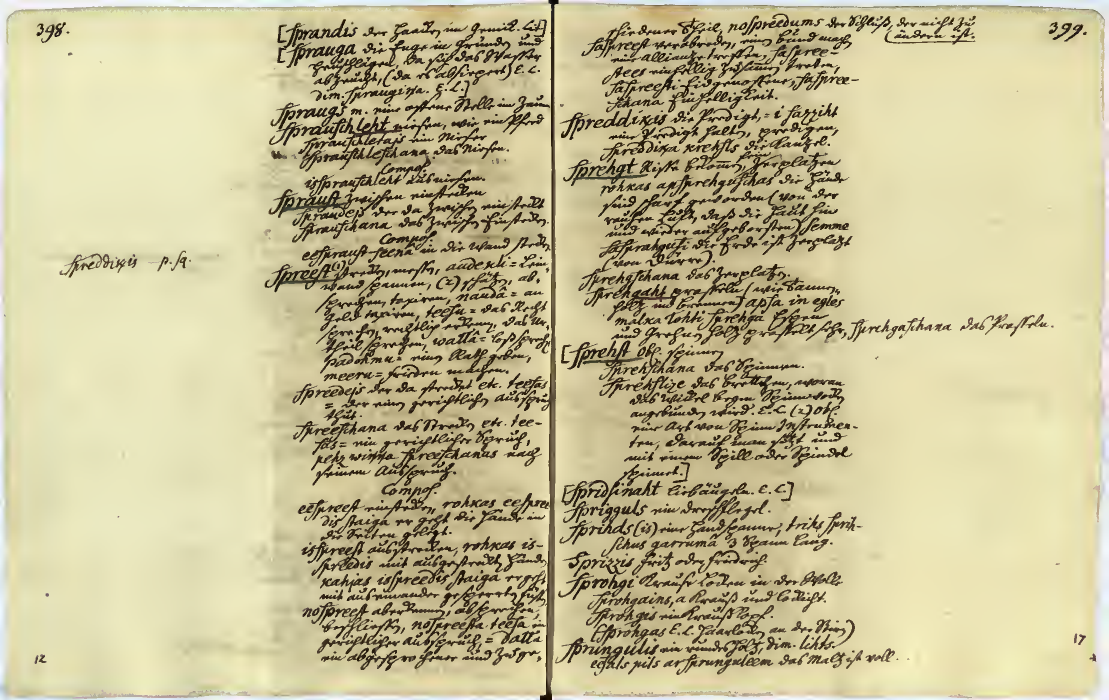 398.
[Sprandis der Haaken im Genick. Lit]
[Sprauga die Enge in Gründen und
da sich das Wasser
abzeucht, (da es absiepert) E. L.
dim. Spraugina. E. L.]
Spraugs m. eine offene Stelle im Zaun
Sprauschleht niesen, wie ein Pferd
Sprauschletajs ein Nieser
Sprauschleschana das Niesen.
Compos.
issprauschleht ausniesen.
Spraust zwischen einstecken
Spraudejs der da zwischen einsteckt
Sprauschana das Zwischen-Einstecken.
Compos.
eespraust seena in die Wand stecken
Spreest (1) strecken, messen, audekli = Lein-
wand spannen, (2) schätzen, ab-
sprechen, taxiren, naudâ = an
Geld taxiren, teesu = das Recht
sprechen, rechtlich erkennen, das Ur-
theil sprechen, walla = losssprechen
padohmu = einen Rath geben,
meeru = frieden machen.
Spreedejs der da strecket etc. teesas
= der einen gerichtlichen Ausspruch
thut.
Spreeschana das Strecken etc. tee-
sas = ein gerichtlicher Spruch,
pehz winna spreeschanas nach
seinem Ausspruch.
Compos.
eespreest einstrecken, rohkas eespree-
dis staiga er geht die Hände in
die Seiten gelegt.
isspreest ausstrecken, rohkas is-
spreedis mit ausgestreckten Händen
kahjas isspreedis staiga er geht
mit auseinander gesperrten Füssen
nospreest aberkennen, absprechen,
beschliessen, nospreesta teesa ein
gerichtlicher Ausspruch, = datta
ein abgesprochener und zu ge-
Spreddikis p. sq.
12
399.
schiedener Theil, nospreedums der Schluß, der nicht zu
ändern ist.
saspreest verabreden, einen Bund machen
eine allianze treffen, saspree-
stees einhellig zusammen treten,
saspreesti Eidgenossene, saspree-
schana Einhelligkeit.
Spreddikis die Predigt, = i sazziht
eine Predigt halten, predigen,
spreddika krehsls die Kanzel.
Sprehgt Risse bekommen, zerplatzen
rohkas apsprehguschas die Hände
sind scharf geworden (von der
rauhen Luft, daß die Haut hin
und wieder aufgeborsten) semme
sasprahgusi die Erde ist zerplatzt
(von Dürre).
Sprehgschana das Zerplatzen.
Sprehgaht prasseln (wie Tannen-
holz im brennen) apsa in egles
malka lohti sprehga Espen
und Grehnen Holz prasselt sehr, sprehgaschana das Prasseln.
[Sprehst obs. spinnen
Sprehschana das Spinnen.
Sprehslize das Brettchen, woran
das Wickel beym Spinnrocken
angebunden wird. E. L. (2) obs.
eine Art von Spinn Instrumen-
ten, darauf man sitzt und
mit einem Spill oder Spindel
spinnet.]
[Spridsinaht liebäugeln. E. L.]
Spriggulis ein Dreschflegel.
Sprihds (is) eine Handspanne, trihs sprih-
schus garrumâ 3 Spann lang.
Sprizzis Fritz oder Friedrich.
Sprohgi Krause Locken in der Wolle
Sprohgains, a krauß und lockicht.
Sprohgis ein Krauß Kopf.
(Sprohgas E. L. Haarlocken an der Stirn)
Sprungulis ein rundes Holz, dim. lihts.
eesals pils ar sprunguleem das Maltz ist voll.
17